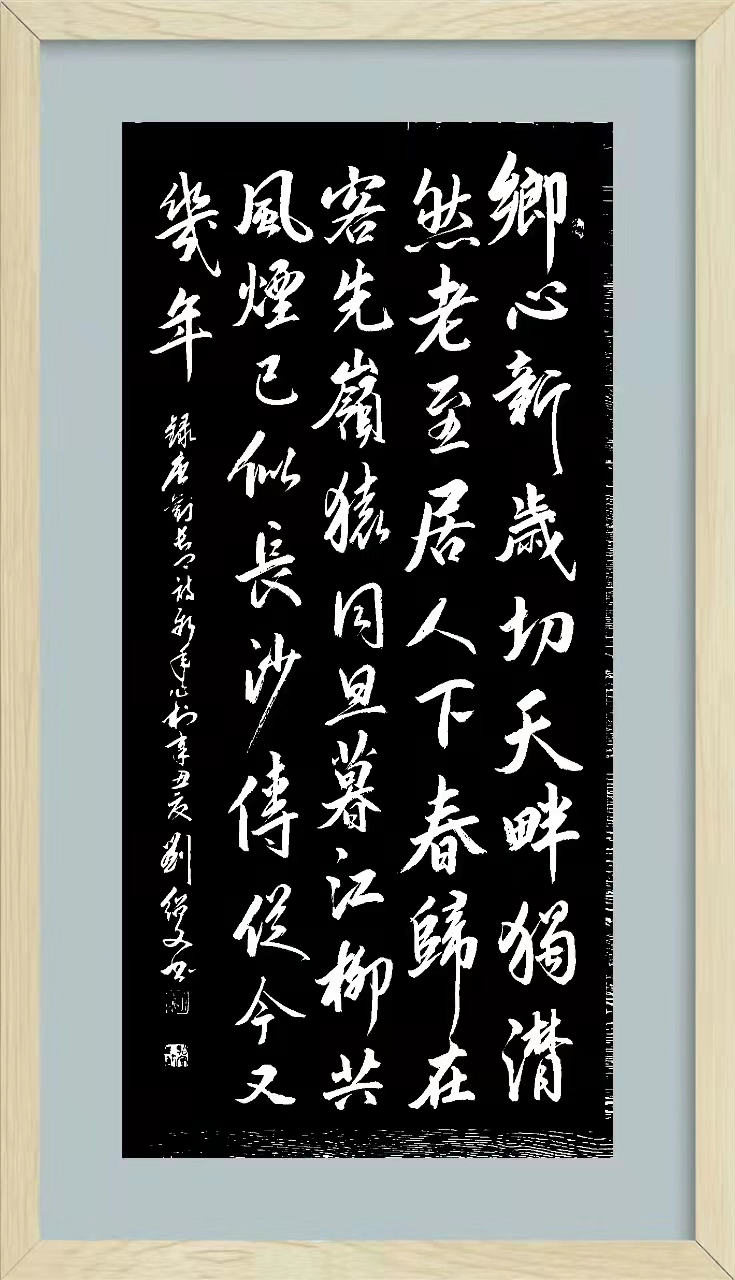 鄉心新歲切天畔獨潸
然老至居人下春歸在
客先嶺猿同旦暮江柳共
風煙已似長沙傅從今又
幾年
録唐劉長卿詩新年作於辛丑夏劉紹文书